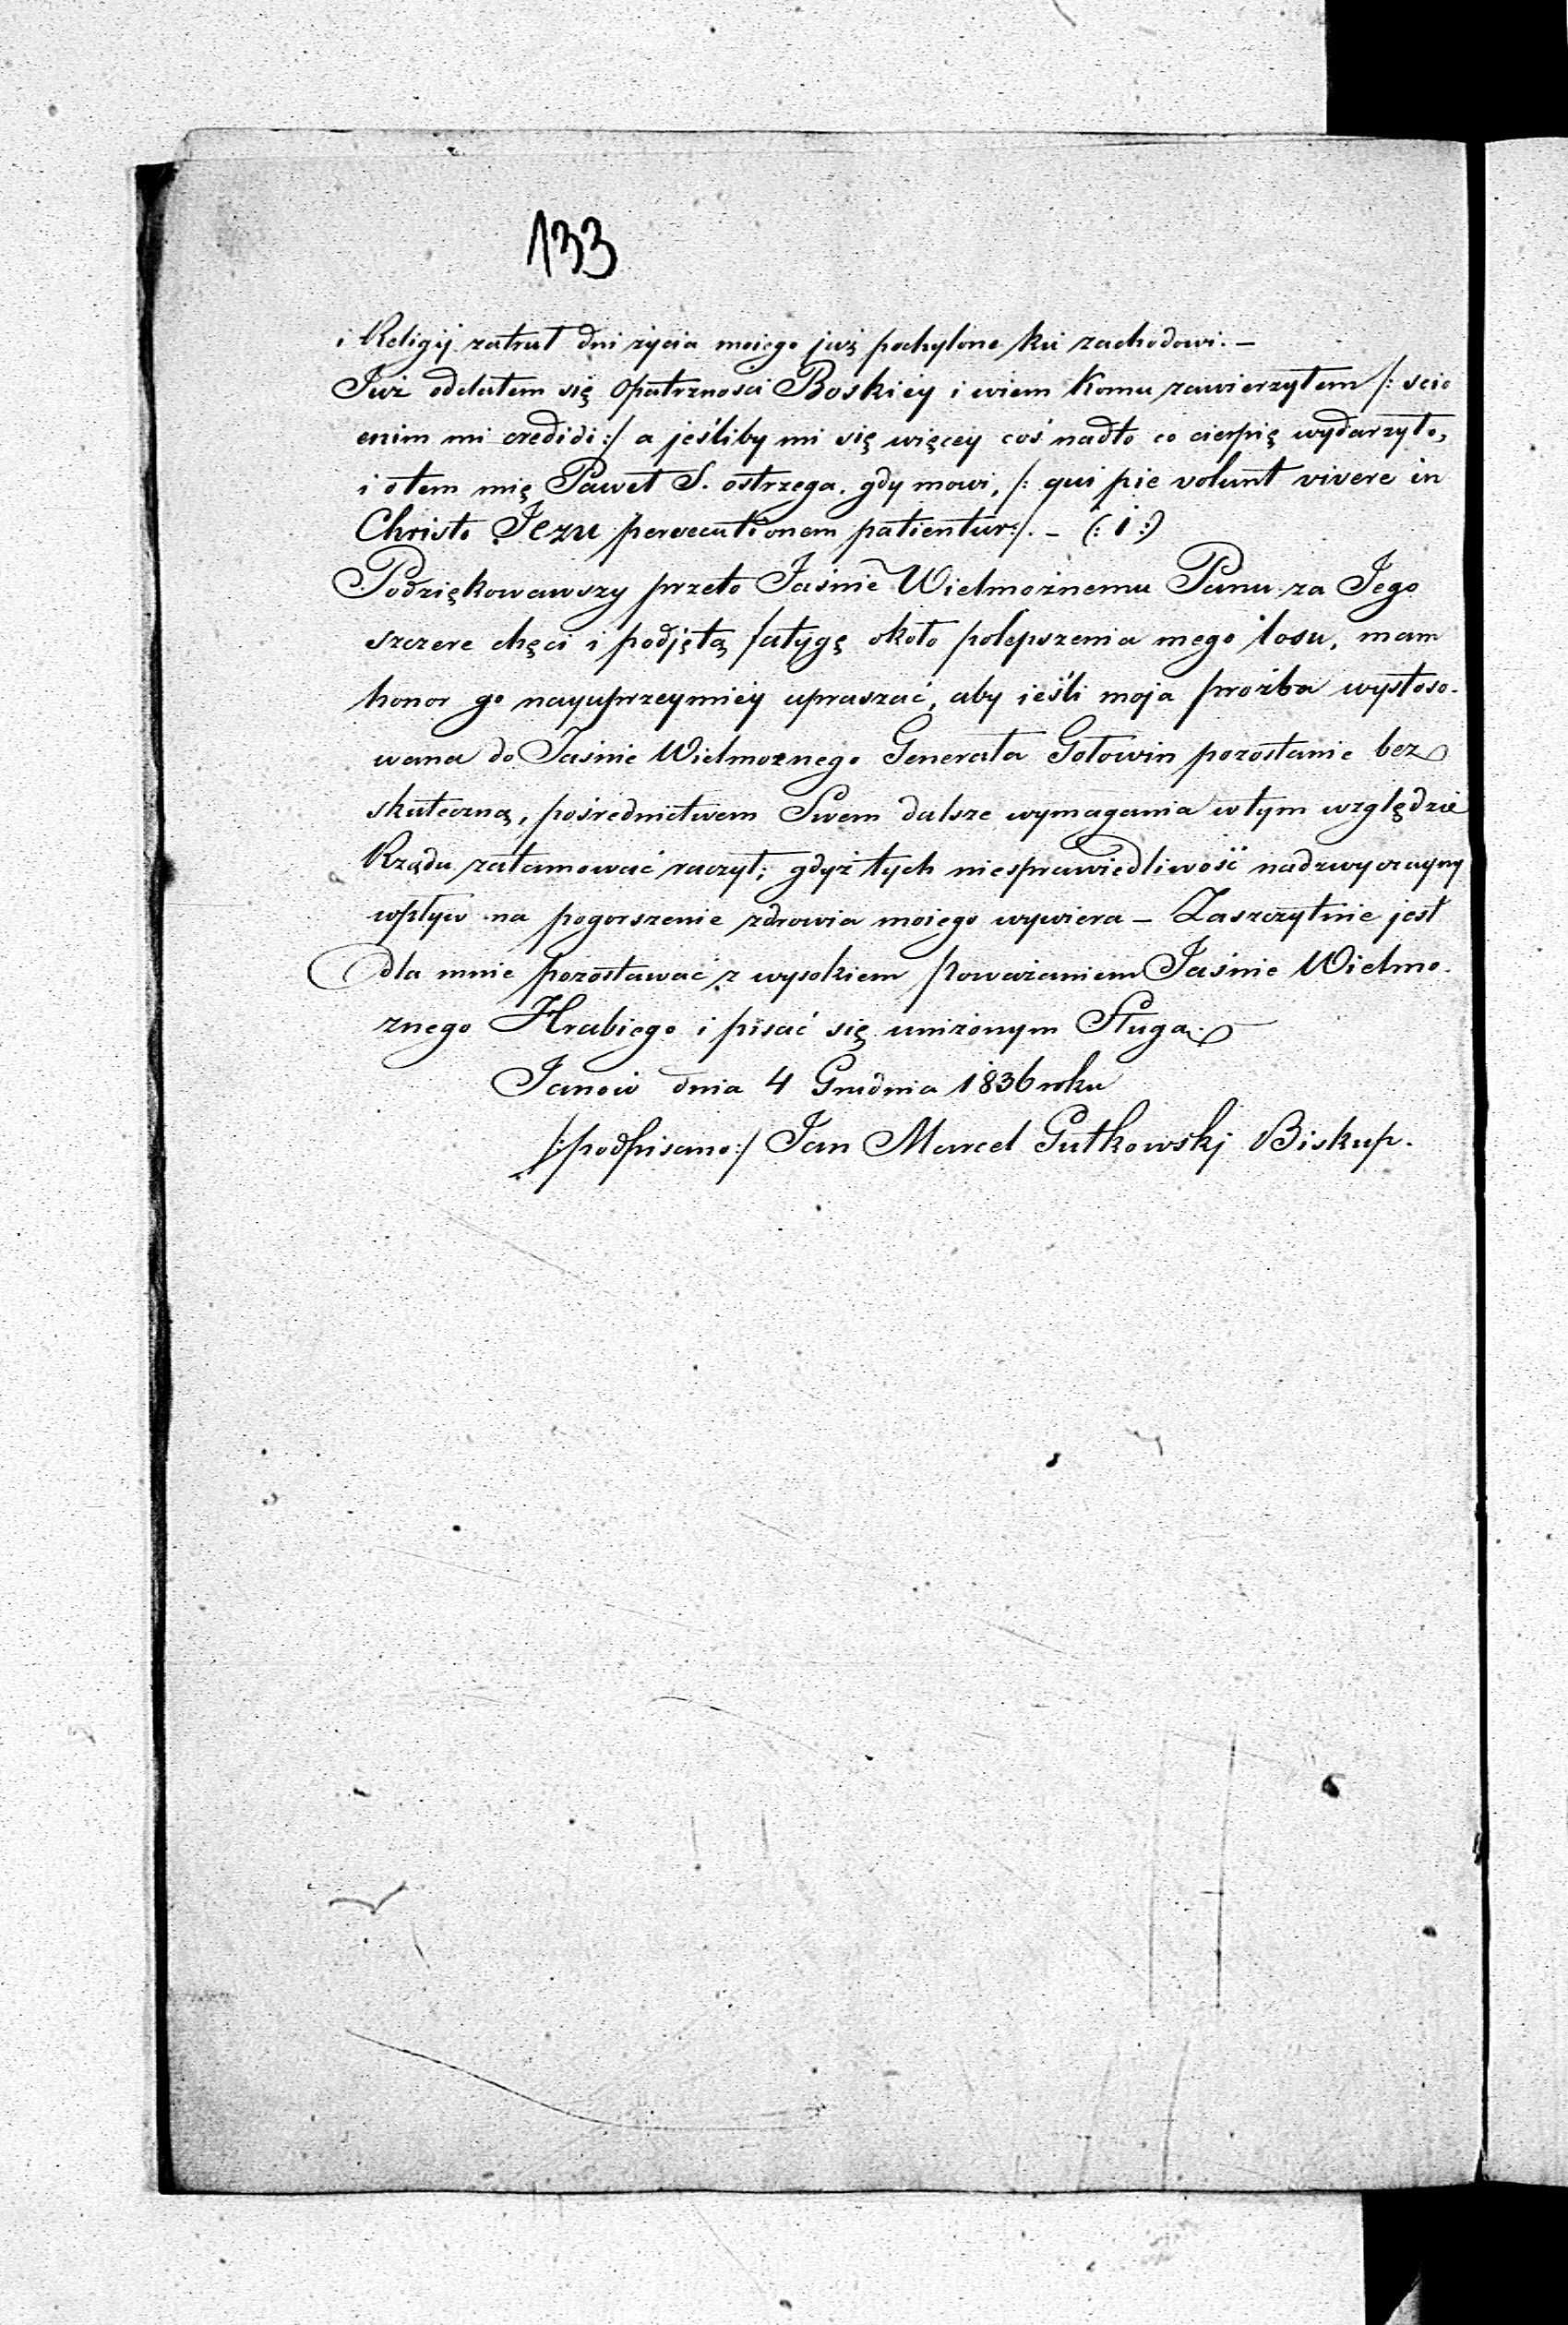 133
i Religij zatruł dni życia moiego już pochylone ku zachodowi. –
Już oddałem się Opatrznosci Boskiey i wiem Komu zawierzyłem /: scio
enim mi credidi :/ a jeśliby mi się więcey coś nadto co cierpię wydarzyło,
i o tem mię Paweł S. ostrzega, gdy mowi, /: qui pie volunt vivere in
Christo Jezu persecutionem patientur :/. – (: i :)
Podziękowawszy przeto Jaśnie Wielmożnemu Panu za Jego
szczere chęci i podjętą fatygę około polepszenia mego losu, mam
honor go nayuprzeymiéy upraszać, aby ieśli moja prożba wystoso-
wana do Jaśnie Wielmoznego Generała Gołowin pozostanie bez
skuteczną, pośrednictwem Swem dalsze wymagania w tym względzie
Rządu zatamować raczył; gdyż tych niesprawiedliwość nadzwyczayny
wpływ na pogorszenie zdrowia moiego wywiera – Zaszczytnie jest
dla mnie pozostawać z wysokiem Poważaniem Jaśnie Wielmo-
znego Hrabiego i pisać się uniżonym Sługą.
Janow dnia 4 Grudnia 1836 roku
/: podpisano :/ Jan Marcel Gutkowskj Biskup.